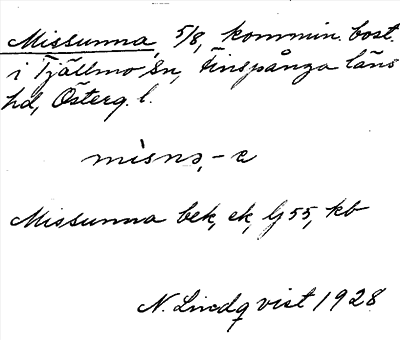 Missunna, 5/8, kommin. bost.
i Tjällmo sn, Finspånga läns
hd, Österg. l.
mìsnə, -a
Missunna bek, ek, lj 55, kb
N. Lindqvist 1928